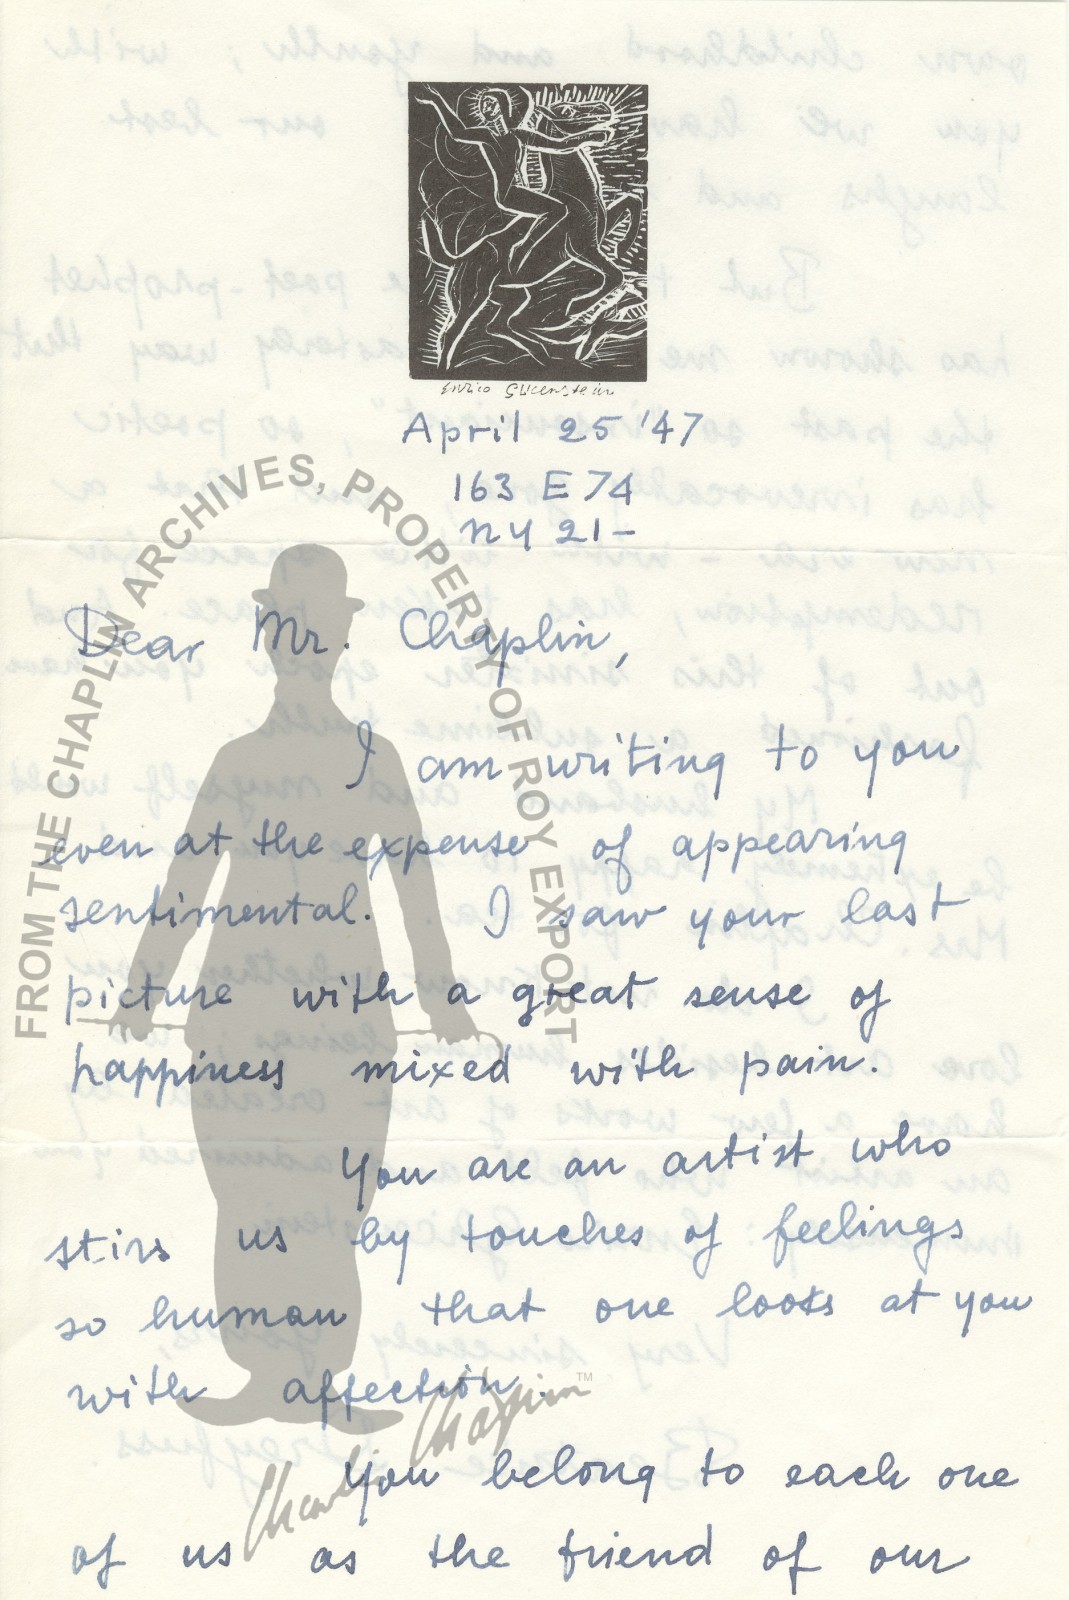 Enrico Glicenstein
April 25 '47
163 E 74
NY 21-
Dear Mr. Chaplin,
I am writing to you
even at the expense of appearing
sentimental. I saw your last
picture with a great sense of
happiness mixed with pain.
You are an artist who
stirs us by touches of feelings
so human that one looks at you
with affection.
You belong to each one
of us as the friend of our
FROM THE CHAPLIN ARCHIVES, PROPERTY OF ROY EXPORT
Charlie Chaplin™